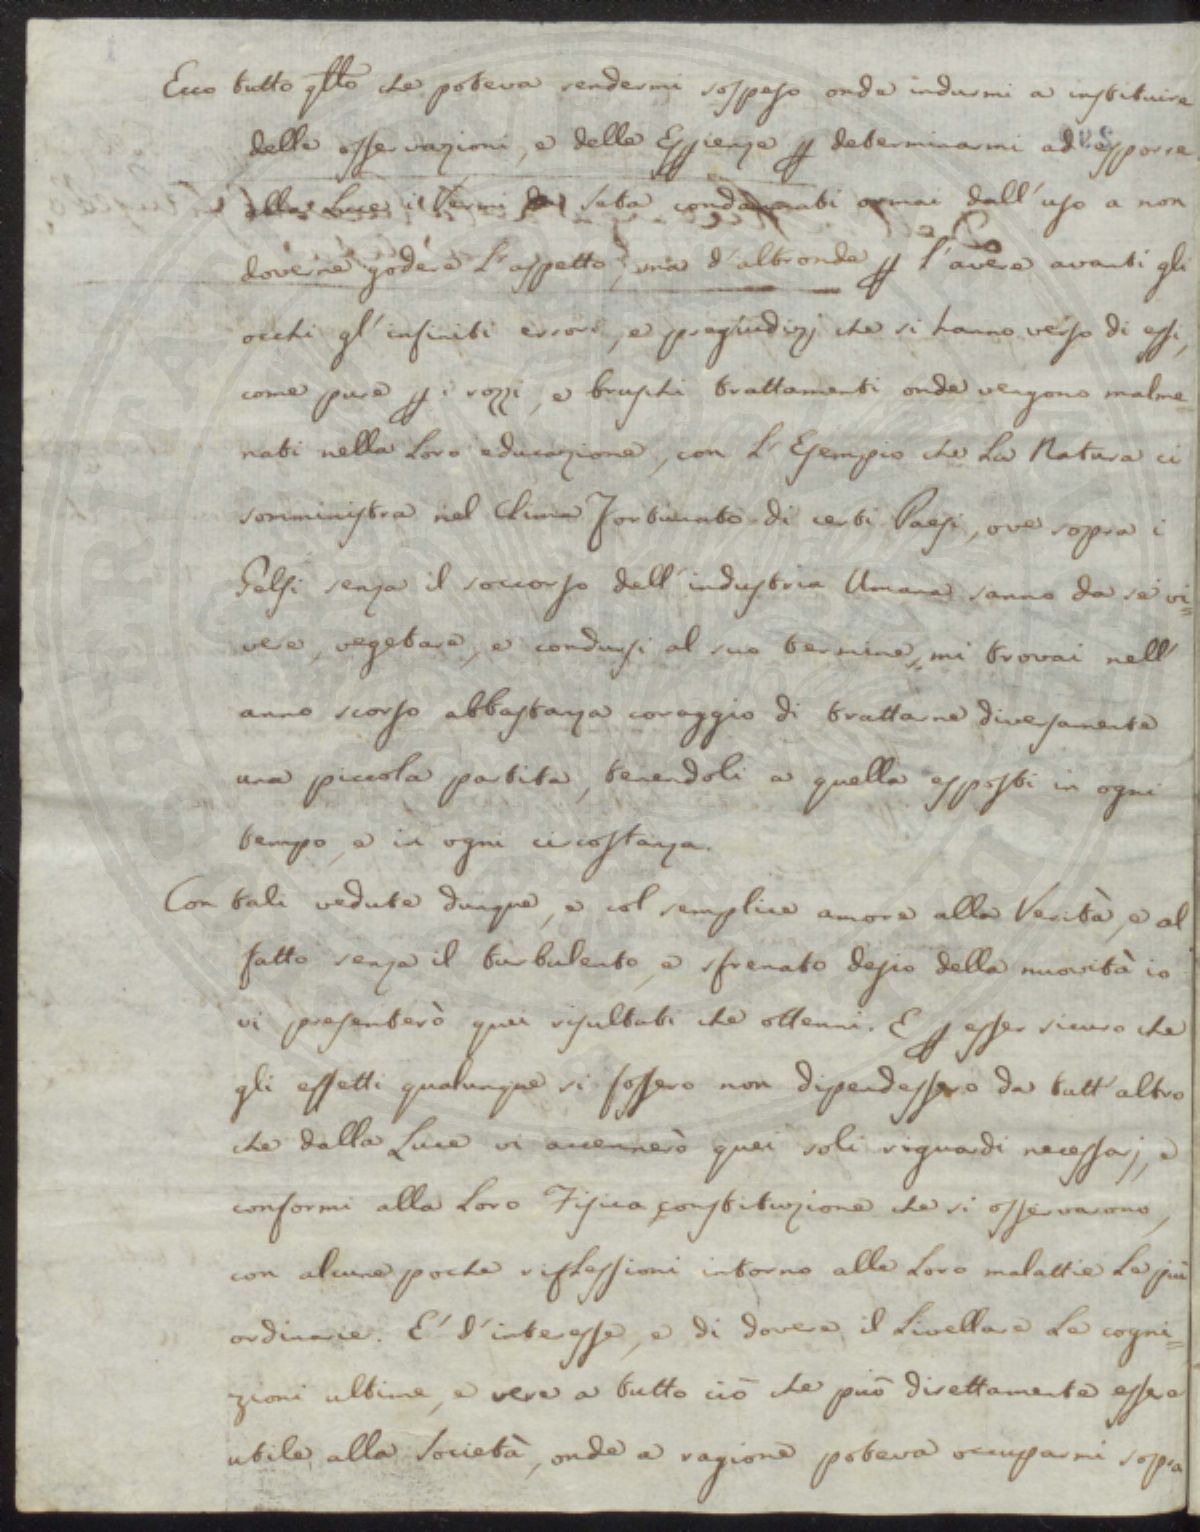 Ecco tutto qllo che poteva rendermi sospeso onde indurmi a instituire
delle osservazioni, e delle Esperienze per determinarmi ad esporre
alla Luce i Vermi da seta condannati ormai dall'uso a non
doverne godere L'aspetto, ma d'altronde per l'avere avanti gli
occhi gl'infiniti errori, e pregiudizj che si hanno verso di essi,
come pure per i rozzi, e bruschi trattamenti onde vengono malme=
nati nella Loro educazione, con L'Esempio che La Natura ci
somministra nel Clima Fortunato di certi Paesi, ove sopra i
Gelsi senza il soccorso dell'industria Umana sanno da se vi=
vere, vegetare, e condursi al suo termine, mi trovai nell'
anno scorso abbastanza coraggio di trattarne diversamente
una piccola partita, tenendoli a quella esposti in ogni
tempo, e in ogni circostanza.
Con tali vedute dunque, e col semplice amore alla Verità, e al
fatto senza il turbulento, e sfrenato desio della nuovità io
vi presenterò quei risultati che ottenni. E per esser sicuro che
gli effetti qualunque si fossero non dipendessero da tutt'altro
che dalla Luce vi accennerò quei soli riguardi necessarj, e
conformi alla Loro Fisica constituzione che si osservarono,
con alcune poche riflessioni intorno alle Loro malattie Le più
ordinarie. E' d'interesse, e di dovere il Livellare Le cogni=
zioni ultime, e vere a tutto ciò che può direttamente essere
utile alla Società, onde a ragione poteva occuparmi sopra